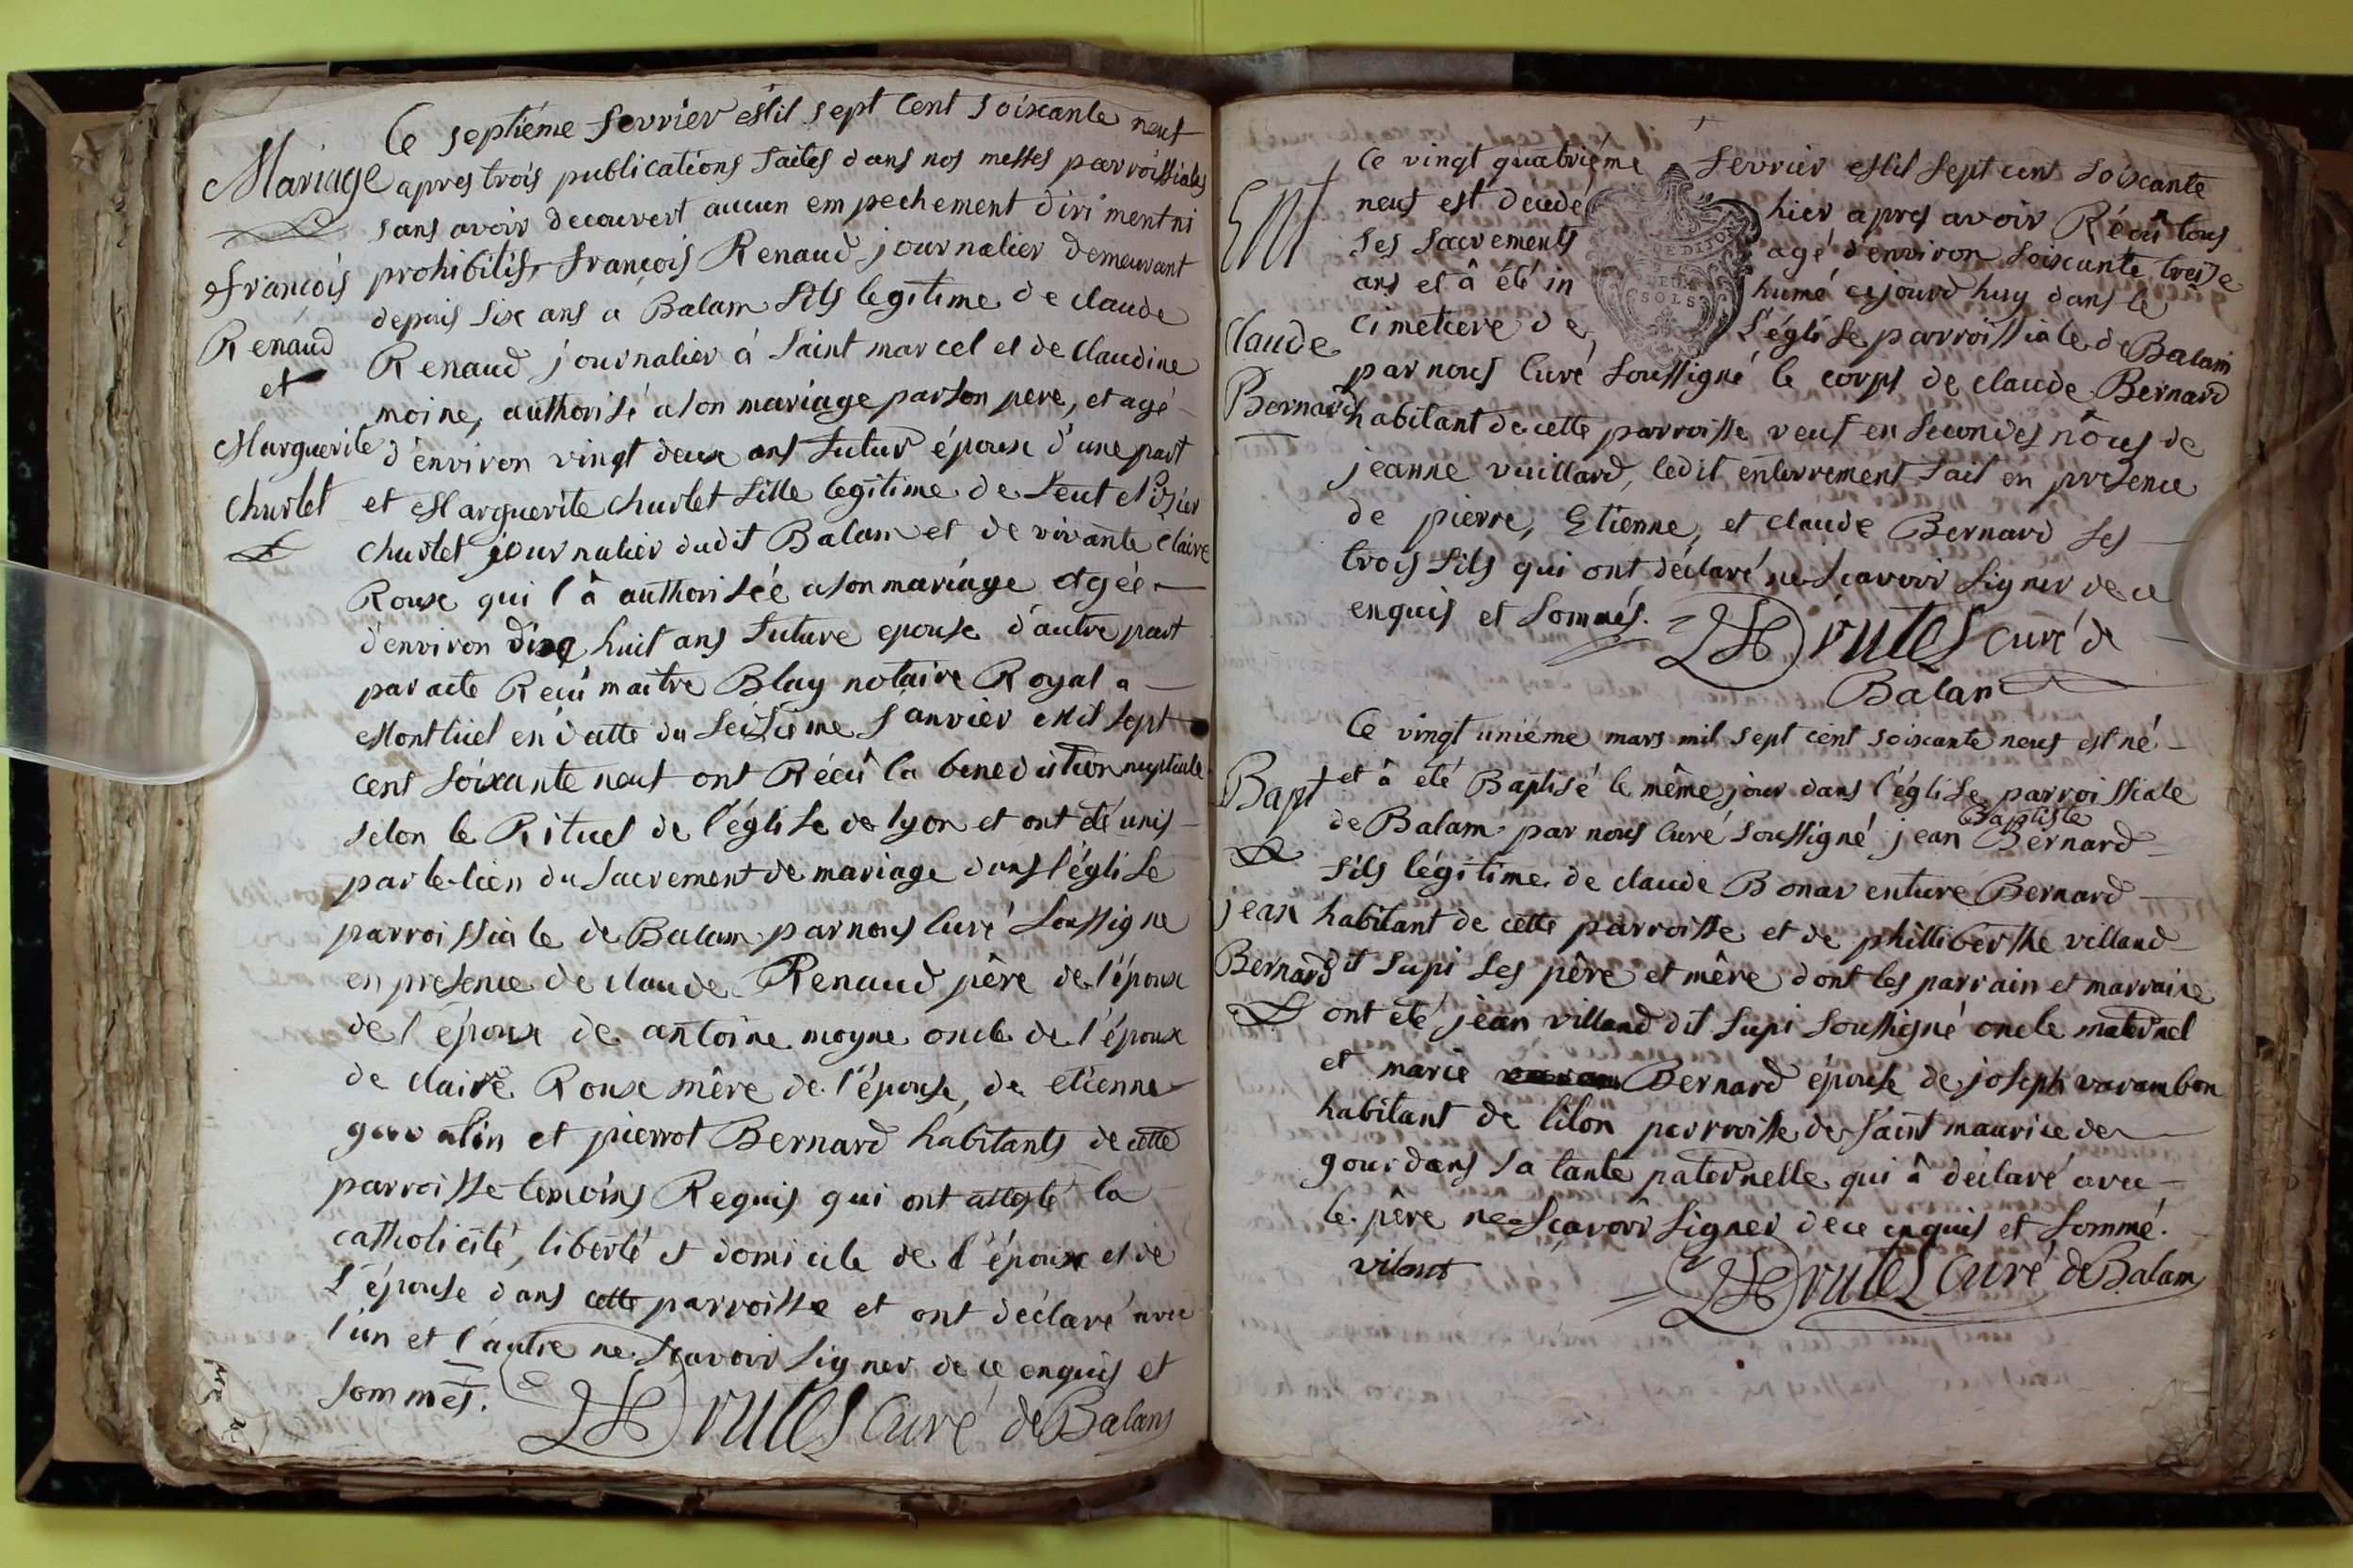 Ce septiéme fevrier Mil sept Cent soixante neuf
Mariage apres trois publications faites dans nos messes parroissiales
sans avoir decouvert aucun empechement diriment ni
François prohibitif, françois Renaud journalier demeurant
depuis six ans a Balam fils legitime de claude
Renaud Renaud journalier à saint marcel et de claudine
et
moine, authorisé a son mariage par son pere, et agé
Marguerite d'environ vingt deux ans futur époux d'une part
Churlet et Marguerite churlet fille legitime de feu
churlet journalier dudit Balam et de vivante claire
Roux qui l'â authorisée a son mariage Agée
d'environ dix huit ans future epouse d'autre part
par acte Reçû maitre Blay notaire Royal a
Montluel en datte du seizieme janvier Mil sept
cent soixante neuf ont Réçû la benediction nuptiale
selon le Rituel de l'église de lyon et ont été unis
par le lien du sacrement de mariage dans l'église
parroissiale de Balam par nous curé soussigné
en presence de claude Renaud père de l'époux
de l'époux de antoine moyne oncle de l'époux
de claire Roux mêre de l'épouse, de etienne
et pierrot Bernard habitants de cette
parroisse temoins Requis qui ont attesté la
catholicité, liberté et domicile de l'époux et de
l'épouse dans cette parroisse et ont déclaré avec
l'un et l'autre ne sçavoir signer de ce enquis et
sommés.
Drutel Curé de Balam
Ce vingt quatriéme fevrier Mil sept cent soixante
Ent neuf est décédé hier apres avoir Réçû tous
ses sacrements agé d'environ soixante treize
ans et â été inhumé cejourd'huy dans le
DE DIJON
DEUX
SOLS
Claude cimetiere de l'église parroissiale de Balam
par nous Curé soussigné le corps de claude Bernard
Bernard habitant de cette parroisse veuf en secondes nôces de
jeanne vuillard, ledit enterrement fait en presence
de pierre, Etienne, et claude Bernard ses
trois fils qui ont déclaré ne sçavoir signer de ce
enquis et sommés. Drutel curé de
Balan
Ce vingt uniéme mars mil sept cent soixante neuf est né
Bapt et â été Baptisé le même jour dans l'église parroissiale
Baptiste
de Balam par nous curé soussigné jean Bernard
fils légitime de claude Bonaventure Bernard
jean habitant de cette parroisse et de philliberthe villand
Bernard dit supi ses père et mère dont les parrain et marraine
ont été jean villand dit supi soussigné oncle maternel
et marie Bernard épouse de joseph varambon
habitant de lilon parroisse de saint maurice de
gourdans sa tante paternelle qui â déclaré avec
le père ne sçavoir signer de ce enquis et sommé.
vilant Drutel Curé de Balam